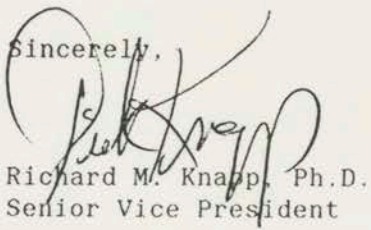 Sincerely,
Dick Knapp
Richard M. Knapp, Ph.D.
Senior Vice President